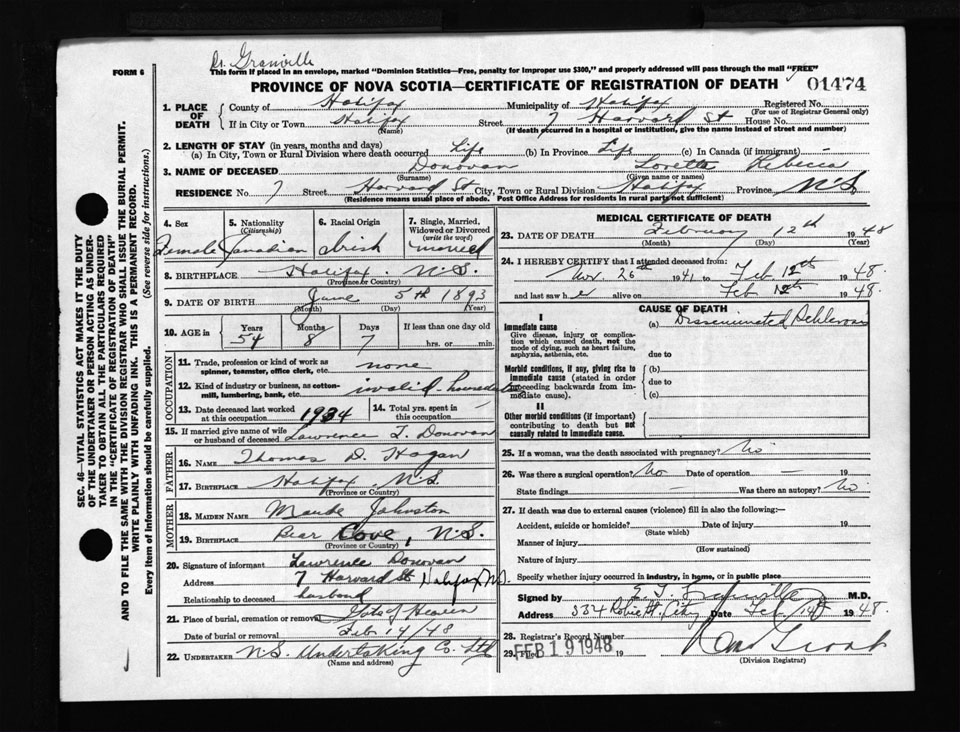 Dr. Granville
FORM 6
This form if placed in an envelope, marked "Dominion Statistics—Free, penalty for improper use $300," and properly addressed will pass through the mail "FREE"
PROVINCE OF NOVA SCOTIA—CERTIFICATE OF REGISTRATION OF DEATH
01474
1. PLACE OF DEATH
County of Halifax Municipality of Halifax Registered No.
(For use of Registrar General only)
If in City or Town Halifax Street 7 Harvard St House No.
(Name) (If death occurred in a hospital or institution, give the name instead of street and number)
2. LENGTH OF STAY (in years, months and days)
(a) In City, Town or Rural Division where death occurred Life (b) In Province Life (c) In Canada (if immigrant)
3. NAME OF DECEASED Donovan Loretta Rebecca
(Surname) (Given name or names)
RESIDENCE No. 7 Street Harvard St City, Town or Rural Division Halifax Province N.S.
(Residence means usual place of abode. Post Office Address for residents in rural parts not sufficient)
4. Sex Female
5. Nationality (Citizenship) Canadian
6. Racial Origin Irish
7. Single, Married, Widowed or Divorced (write the word) married
8. BIRTHPLACE Halifax. N.S.
(Province or Country)
9. DATE OF BIRTH June 5th 1893
(Month) (Day) (Year)
10. AGE in Years Months Days If less than one day
54 8 7 hrs. or min.
OCCUPATION
11. Trade, profession or kind of work as spinner, teamster, office clerk, etc. none
12. Kind of industry or business, as cotton-mill, lumbering, bank, etc. invalid
13. Date deceased last worked at this occupation 1934
14. Total yrs. spent in this occupation
15. If married give name of wife or husband of deceased Lawrence T. Donovan
FATHER
16. NAME Thomas D. Hagan
17. BIRTHPLACE Halifax N.S.
(Province or Country)
MOTHER
18. MAIDEN NAME Maude Johnston
19. BIRTHPLACE Bear Cove, N.S.
(Province or Country)
20. Signature of informant Lawrence Donovan
Address 7 Harvard St. Halifax N.S.
Relationship to deceased husband
21. Place of burial, cremation or removal Gate of Heaven
Date of burial or removal Feb 14/48
22. UNDERTAKER N.S. Undertaking Co. Ltd
(Name and address)
MEDICAL CERTIFICATE OF DEATH
23. DATE OF DEATH February 12th 1948
(Month) (Day) (Year)
24. I HEREBY CERTIFY that I attended deceased from:
Nov. 26th 1941 to Feb 12th 1948.
and last saw h er alive on Feb 12th 1948.
CAUSE OF DEATH
I
Immediate cause
Give disease, injury or complication which caused death, not the mode of dying, such as heart failure, asphyxia, asthenia, etc.
(a) Disseminated Sclerosis
due to
Morbid conditions, if any, giving rise to immediate cause (stated in order proceeding backwards from immediate cause).
(b)
due to
(c)
II
Other morbid conditions (if important) contributing to death but not causally related to immediate cause.
25. If a woman, was the death associated with pregnancy? No
26. Was there a surgical operation? No Date of operation — 19
State findings — Was there an autopsy? No
27. If death was due to external causes (violence) fill in also the following:—
Accident, suicide or homicide? Date of injury 19
(State which)
Manner of injury
(How sustained)
Nature of injury
Specify whether injury occurred in industry, in home, or in public place
Signed by E. T. Granville M.D.
Address 334 Robie St. City Date Feb 14th 1948.
28. Registrar's Record Number
29. Filed FEB 19 1948 19
(Division Registrar)
SEC. 46—VITAL STATISTICS ACT MAKES IT THE DUTY
OF THE UNDERTAKER OR PERSON ACTING AS UNDER-
TAKER TO OBTAIN ALL THE PARTICULARS REQUIRED
IN THE "CERTIFICATE OF REGISTRATION OF DEATH"
AND TO FILE THE SAME WITH THE DIVISION REGISTRAR WHO SHALL ISSUE THE BURIAL PERMIT.
WRITE PLAINLY WITH UNFADING INK. THIS IS A PERMANENT RECORD.
Every item of information should be carefully supplied. (See reverse side for instructions.)